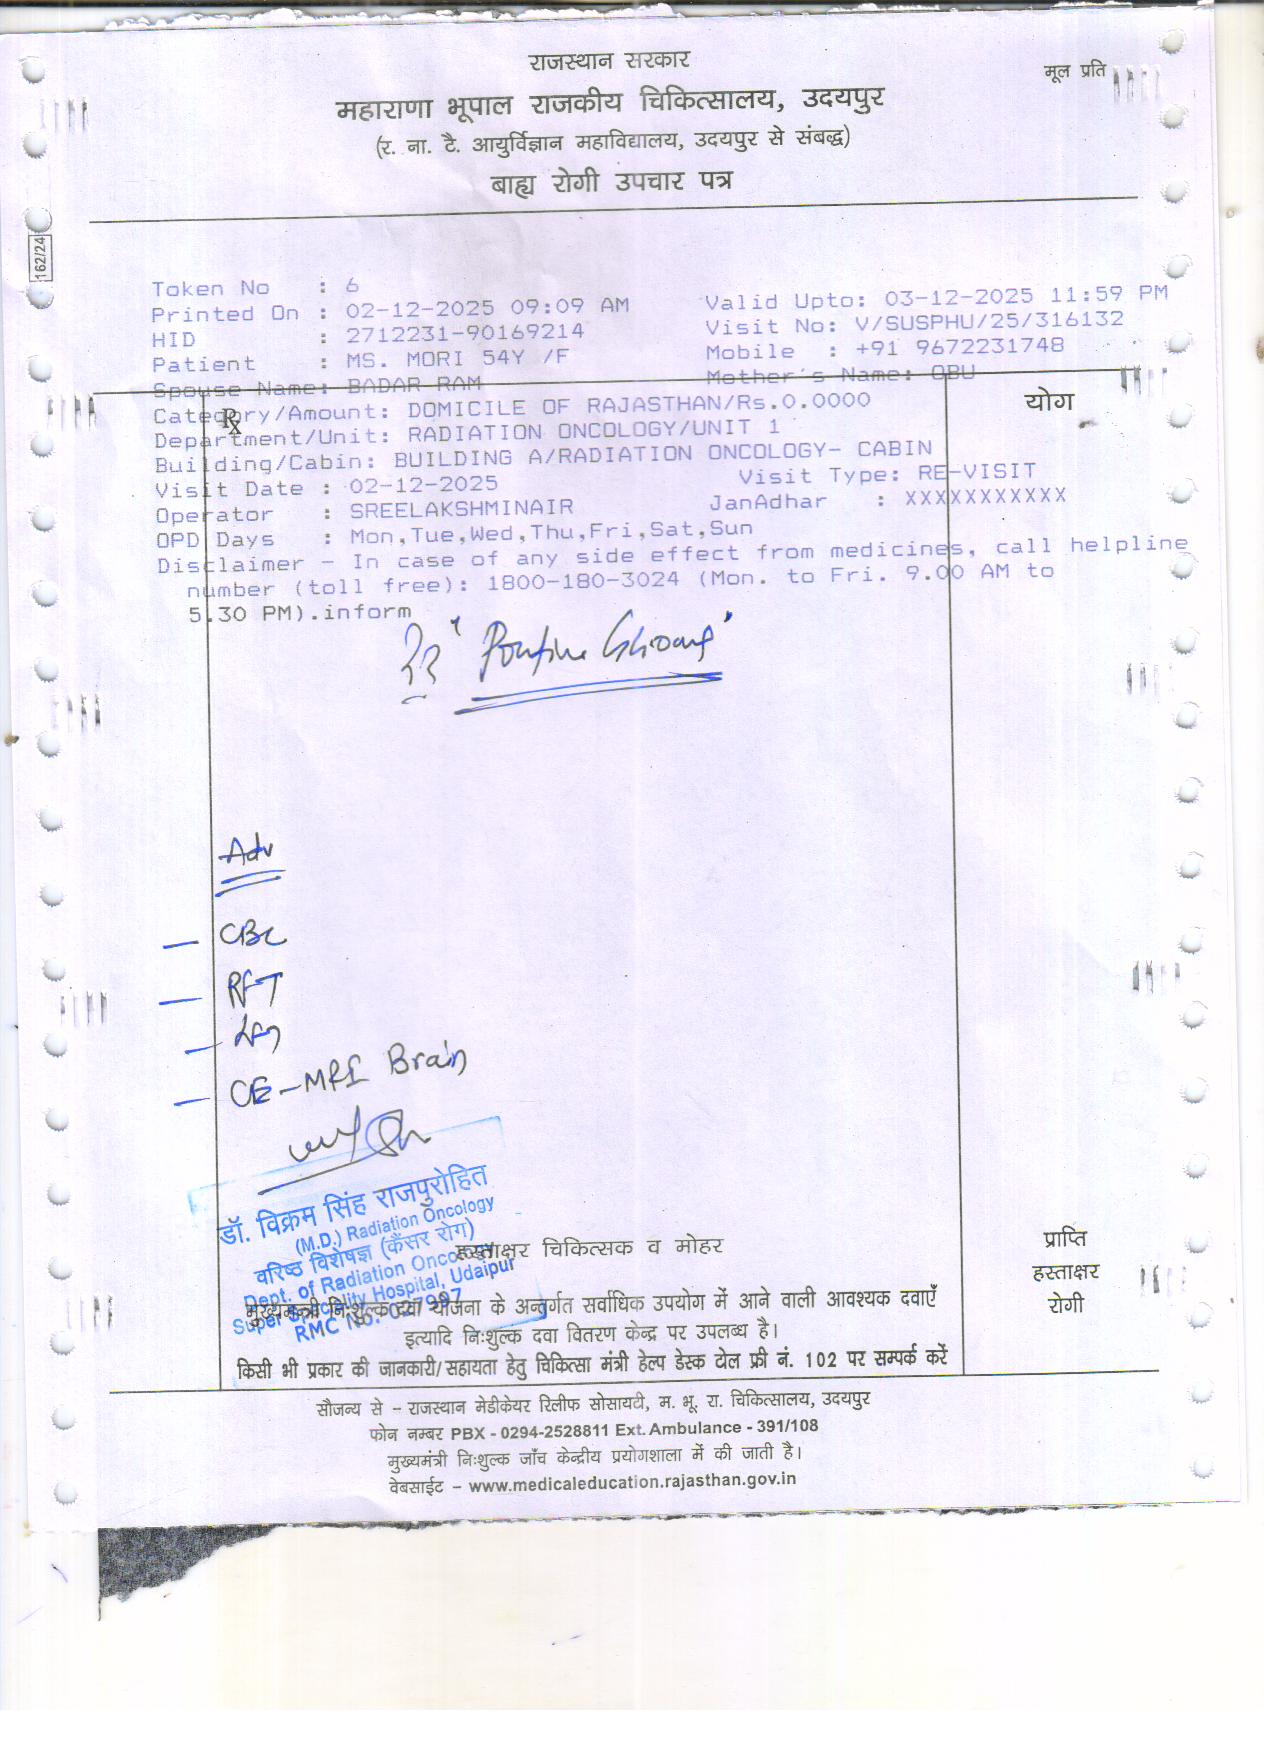 राजस्थान सरकार
मूल प्रति
महाराणा भूपाल राजकीय चिकित्सालय, उदयपुर
(र. ना. टै. आयुर्विज्ञान महाविद्यालय, उदयपुर से संबद्ध)
बाह्य रोगी उपचार पत्र
162/24
Token No : 6
Printed On : 02-12-2025 09:09 AM Valid Upto: 03-12-2025 11:59 PM
HID : 2712231-90169214 Visit No: V/SUSPHU/25/316132
Patient : MS. MORI 54Y /F Mobile : +91 9672231748
Spouse Name: BADAR RAM Mother's Name: OBU
Category/Amount: DOMICILE OF RAJASTHAN/Rs.0.0000
योग
Rx
Department/Unit: RADIATION ONCOLOGY/UNIT 1
Building/Cabin: BUILDING A/RADIATION ONCOLOGY- CABIN
Visit Date : 02-12-2025 Visit Type: RE-VISIT
Operator : SREELAKSHMINAIR JanAdhar : XXXXXXXXXXX
OPD Days : Mon,Tue,Wed,Thu,Fri,Sat,Sun
Disclaimer - In case of any side effect from medicines, call helpline
number (toll free): 1800-180-3024 (Mon. to Fri. 9.00 AM to
5.30 PM).inform
Adv
- CBC
- RFT
- CE-MRI Brain
डॉ. विक्रम सिंह राजपुरोहित
(M.D.) Radiation Oncology
वरिष्ठ विशेषज्ञ (कैंसर रोग)
Dept. of Radiation Oncology
Super Speciality Hospital, Udaipur
RMC No.
हस्ताक्षर चिकित्सक व मोहर
प्राप्ति
हस्ताक्षर
रोगी
मुख्यमन्त्री निःशुल्क दवा योजना के अन्तर्गत सर्वाधिक उपयोग में आने वाली आवश्यक दवाएँ
इत्यादि निःशुल्क दवा वितरण केन्द्र पर उपलब्ध है।
किसी भी प्रकार की जानकारी/सहायता हेतु चिकित्सा मंत्री हेल्प डेस्क टोल फ्री नं. 102 पर सम्पर्क करें
सौजन्य से - राजस्थान मेडीकेयर रिलीफ सोसायटी, म. भू. रा. चिकित्सालय, उदयपुर
फोन नम्बर PBX - 0294-2528811 Ext. Ambulance - 391/108
मुख्यमंत्री निःशुल्क जाँच केन्द्रीय प्रयोगशाला में की जाती है।
वेबसाईट - www.medicaleducation.rajasthan.gov.in